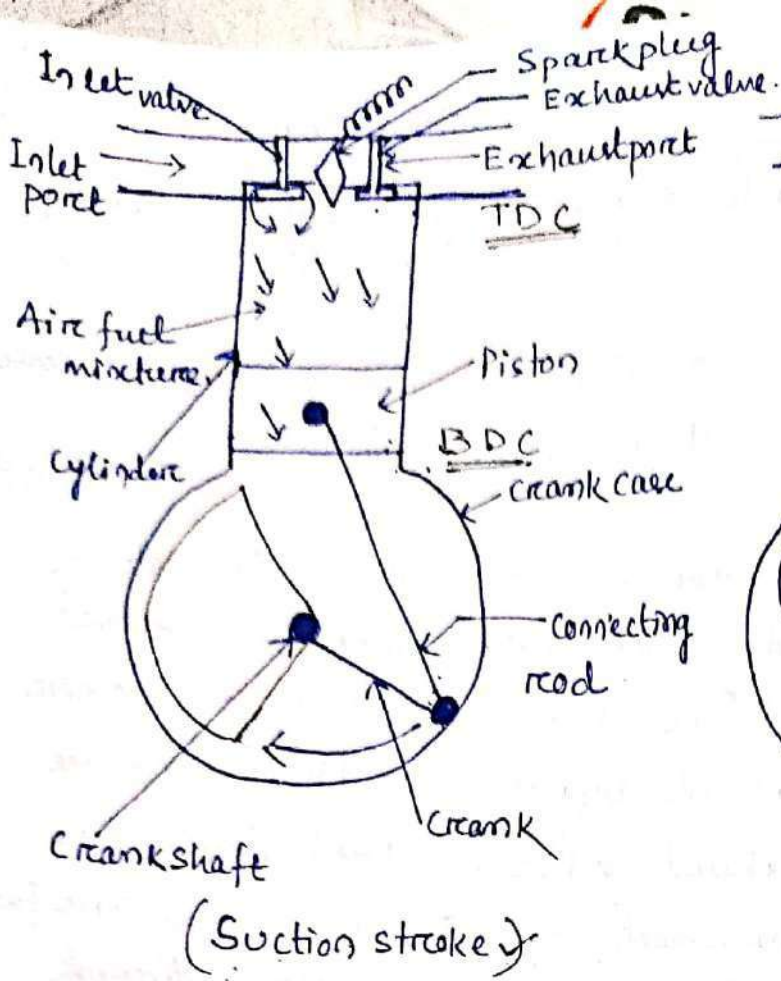 Inlet valve
Sparck plug
Exhaust valve.
Inlet
porct
Exhaust porct
TDC
Airc fuel
mixturce
Piston
Cylinderc
BDC
Crcank case
Connecting
rcod
Crcank
Crcankshaft
(Suction strcoke)